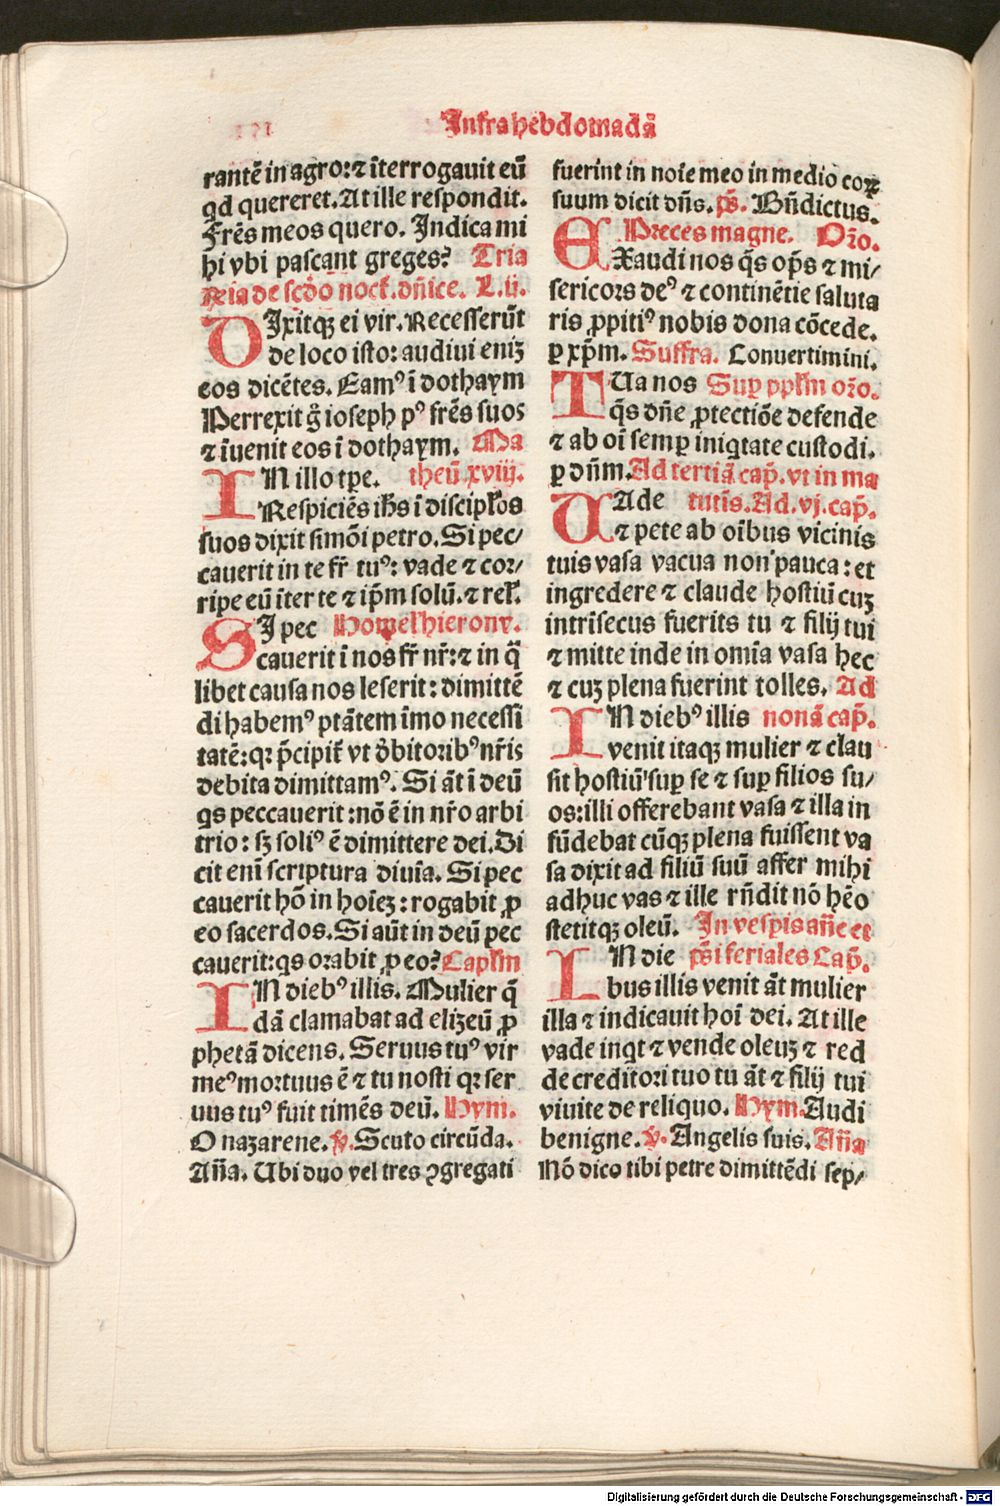 Infra hebdomadã
rantẽ in agro: ⁊ ĩterrogauit eũ
qd quereret. At ille respondit.
Frẽs meos quero. Indica mi
hi vbi pascant greges? Tria
feria de scďo noct̃. dñice. L. ij.
DIxitqꝫ ei vir. Recesserũt
de loco isto: audiui enĩꝫ
eos dicẽtes. Eamꝰ ĩ dothaym
Perrexit g̃ ioseph pꝰ frẽs suos
⁊ ĩuenit eos ĩ dothaym. Ma
IN illo tꝑe. theũ xviij.
Respiciẽs ih̃s ĩ discipl̃os
suos dixit simõi petro. Si pec/
cauerit in te fr̃ tuꝰ: vade ⁊ cor/
ripe eũ ĩter te ⁊ ip̃m solũ. ⁊ rel̃.
SI pec Homel̃ hierony.
cauerit ĩ nos fr̃ nr̃: ⁊ in q̃
libet causa nos leserit: dimittẽ
di habemꝰ ptãtem ĩmo necessi
tatẽ: qꝛ p̃cipit̃ vt ďbitoribꝰ nr̃is
debita dimittamꝰ. Si ãt ĩ deũ
qs peccauerit: nõ ẽ in nr̃o arbi
trio: sꝫ soliꝰ ẽ dimittere dei. Di
cit enĩ scriptura diuĩa. Si pec
cauerit hõ in hoĩeꝫ: rogabit ꝓ
eo sacerdos. Si aũt in deũ pec
cauerit: qs orabit ꝓ eo? Capl̃m
IN diebꝰ illis. Mulier q̃
dã clamabat ad elizeũ ꝓ
phetã dicens. Seruus tuꝰ vir
meꝰ mortuus ẽ ⁊ tu nosti qꝛ ser
uus tuꝰ fuit timẽs deũ. Hym.
O nazarene. ℣. Scuto circũda.
Añã. Ubi duo vel tres ꝯgregati
fuerint in noĩe meo in medio eoꝝ
suum dicit dñs. ps̃. Bñdictus.
Preces magne. Or̃o.
EXaudi nos q̃s op̃s ⁊ mi/
sericors deꝰ ⁊ continẽtie saluta
ris ꝓpitiꝰ nobis dona cõcede.
ꝑ xp̃m. Suffra. Conuertimini.
TUa nos Suꝑ ppl̃m or̃o.
q̃s dñe ꝓtectiõe defende
⁊ ab oĩ semꝑ iniqtate custodi.
ꝑ dñm. Ad tertiã cap̃. vt in ma
UAde tutĩs. Ad. vj. cap̃.
⁊ pete ab oĩbus vicinis
tuis vasa vacua non pauca: et
ingredere ⁊ claude hostiũ cuꝫ
intrĩsecus fuerits tu ⁊ filij tui
⁊ mitte inde in omĩa vasa hec
⁊ cuꝫ plena fuerint tolles. Ad
IN diebꝰ illis nonã cap̃.
venit itaqꝫ mulier ⁊ clau
sit hostiũ suꝑ se ⁊ suꝑ filios su/
os: illi offerebant vasa ⁊ illa in
fũdebat cũqꝫ plena fuissent va
sa dixit ad filiũ suũ affer mihi
adhuc vas ⁊ ille rñdit nõ hẽo
stetitqꝫ oleũ. In vespis añe et
IN die ps̃i feriales Cap̃.
bus illis venit ãt mulier
illa ⁊ indicauit hoĩ dei. At ille
vade inqt ⁊ vende oleuꝫ ⁊ red
de creditori tuo tu ãt ⁊ filij tui
viuite de reliquo. Hym. Audi
benigne. ℣. Angelis suis. Añã
Nõ dico tibi petre dimittẽdi sep/
Digitalisierung gefördert durch die Deutsche Forschungsgemeinschaft - DFG